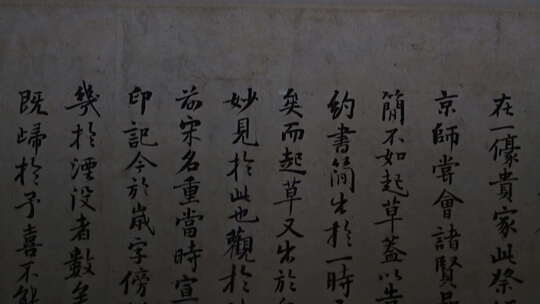 在一豪貴家此祭
京師嘗會諸賢
簡不如起草蓋以
約書簡出於一時
矣而起草又出於
妙見於此也觀於
前宋名重當時宣
印記今於嵗字傍
幾於湮没者數
既歸於予喜不